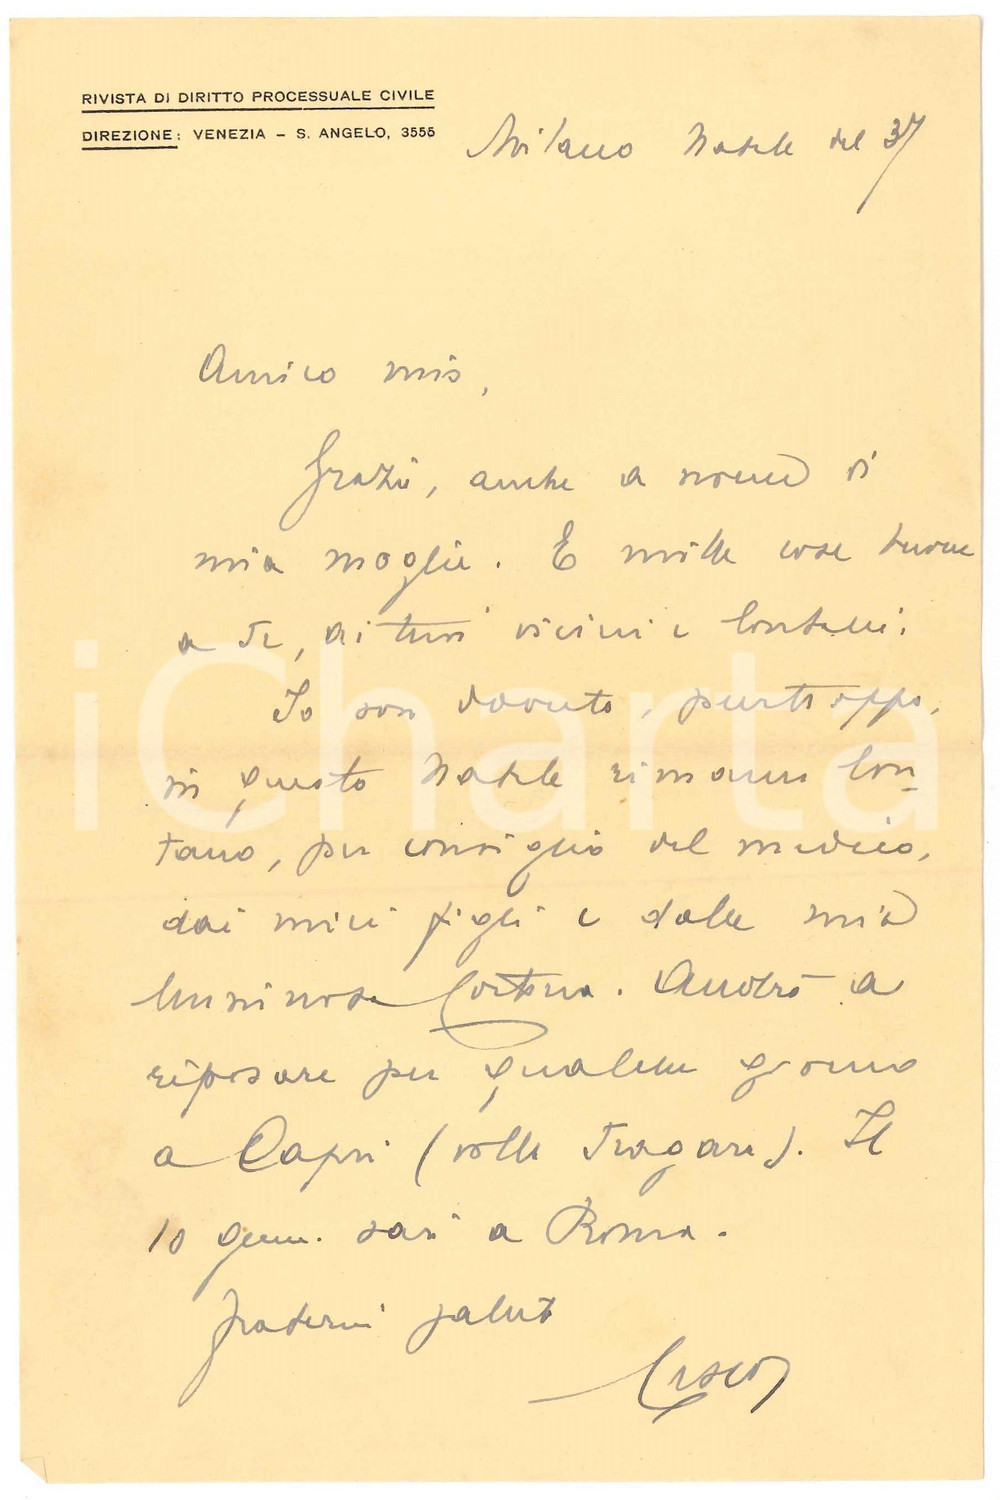 RIVISTA DI DIRITTO PROCESSUALE CIVILE
DIREZIONE: VENEZIA – S. ANGELO, 3555
Milano Natale del 37
Amico mio,
Grazie, anche a nome di
mia moglie. E mille cose buone
a Te, ai tuoi vicini e lontani.
Io son dovuto, purtroppo,
in questo Natale rimaner lon-
tano, per consiglio del medico,
dai miei figli e dalla mia
luminosa Cortina. Andrò a
riposare per qualche giorno
a Capri (villa Tragara). Il
10 genn. sarò a Roma.
Fraterni saluti
iCharta